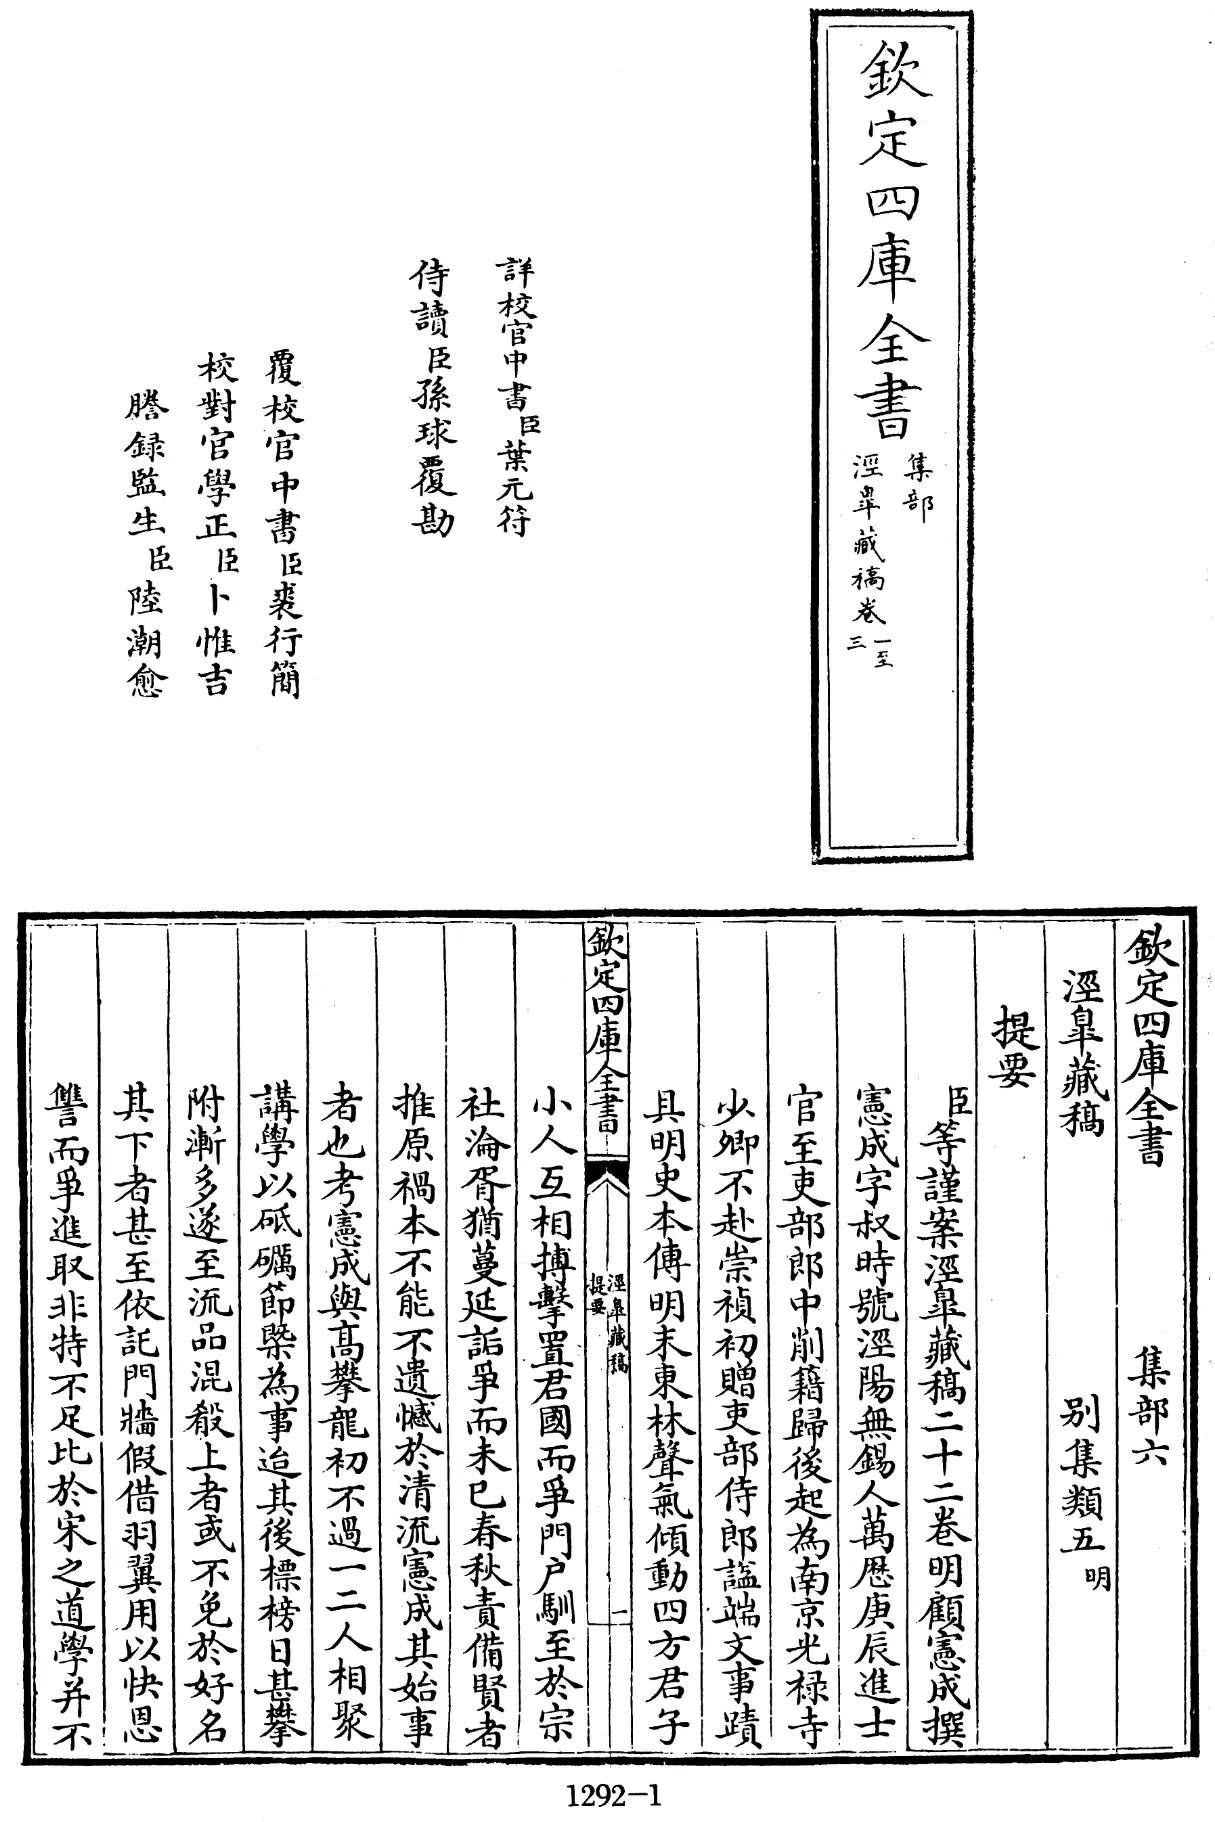 欽定四庫全書
集部
涇臯藏稿卷一至三
詳校官中書臣葉元符
侍讀臣孫球覆勘
覆校官中書臣裘行簡
校對官學正臣卜惟吉
謄錄監生臣陸潮愈
欽定四庫全書 集部六
涇臯藏稿 別集類五明
提要
臣等謹案涇臯藏稿二十二卷明顧憲成撰
憲成字叔時號涇陽無錫人萬厯庚辰進士
官至吏部郎中削籍歸後起為南京光祿寺
少卿不赴崇禎初贈吏部侍郎諡端文事蹟
具明史本傳明末東林聲氣傾動四方君子
欽定四庫全書
涇臯藏稿
提要
一
小人互相搏擊置君國而爭門户馴至於宗
社淪胥猶蔓延詬爭而未已春秋責備賢者
推原禍本不能不遺憾於清流憲成其始事
者也考憲成與高攀龍初不過一二人相聚
講學以砥礪節槩為事迨其後標榜日甚攀
附漸多遂至流品混殽上者或不免於好名
其下者甚至依託門牆假借羽翼用以快恩
讐而爭進取非特不足比於宋之道學并不
1292-1